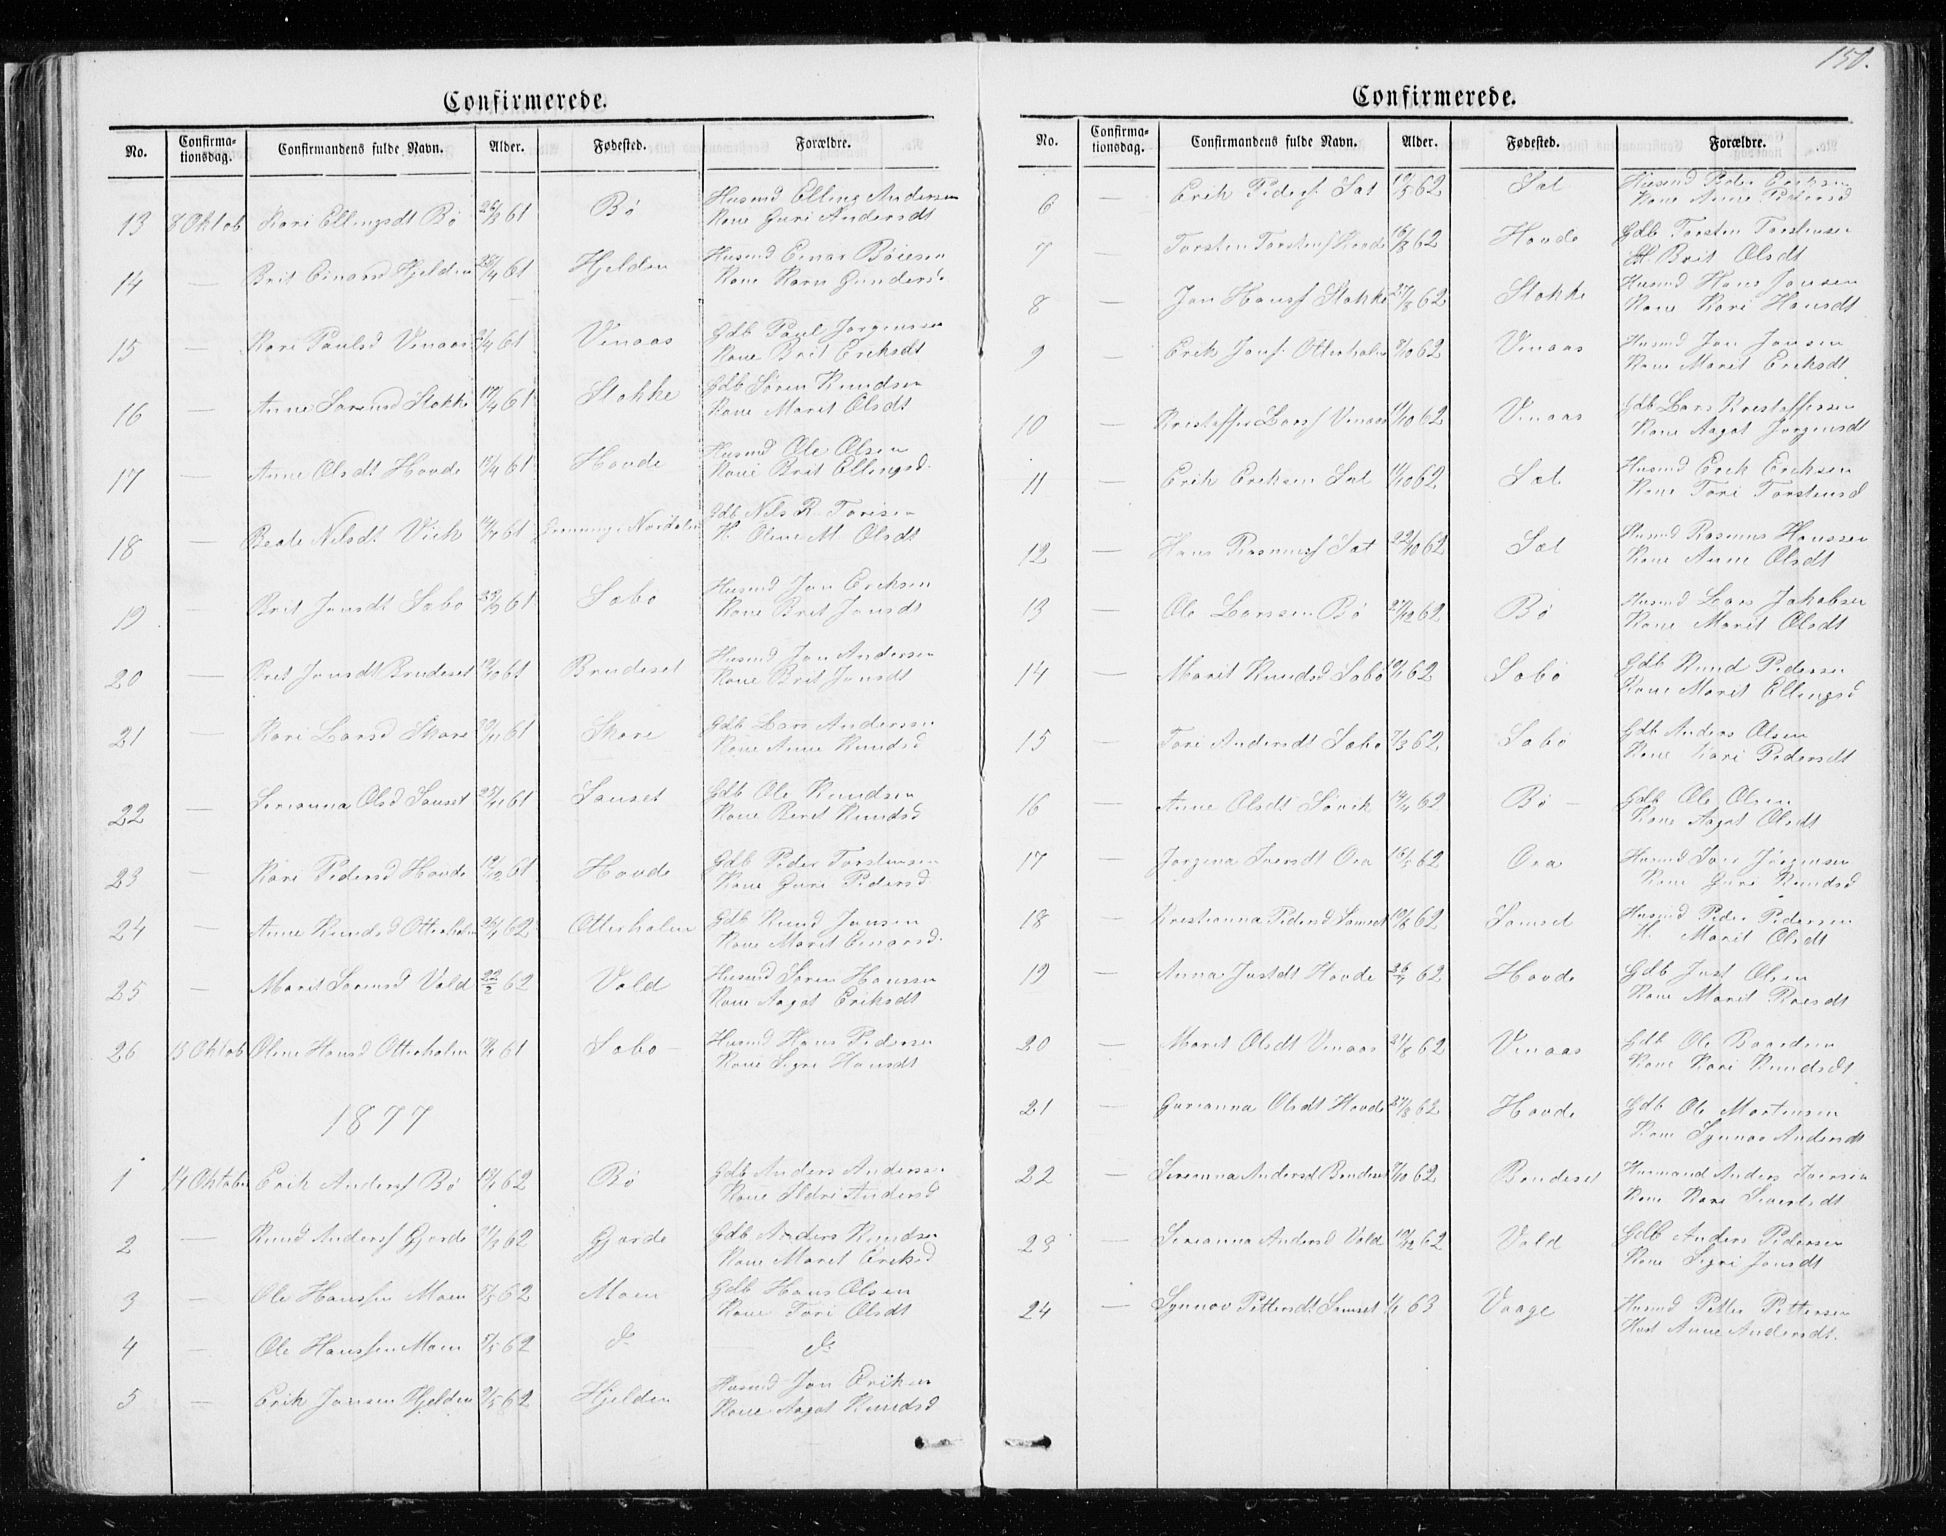 150.
Confirmerede.
No. Confirma-tionsdag. Confirmandens fulde Navn. Alder. Fødested. Forældre.
13 8 Oktob Kari Ellingsdt Bø 61 Bø Husmd Elling Andersen
Kone Guri Andersdt
14 — Brit Einarsd Hjelden 61 Hjelden Husmd Einar Bøiesen
Kone Karn Gundersd
15 — Kari Paulsd Venaas 61 Venaas Gdb Paul Jørgensen
Kone Brit Eriksdt
16 — Anne Sørensd Stokke 17/4 61 Stokke Gdb Søren Knudsen
Kone Marit Olsdt
17 — Anne Olsdt Hovde 61 Hovde Husmd Ole Olsen
Kone Brit Ellingsd
18 — Beate Nilsdt Viek 61 Nordalen Gdb Nils R. Toresen
H. Oline M. Olsdt
19 — Brit Jonsdt Sæbø 61 Sæbø Husmd Jon Eriksen
Kone Brit Jonsdt
20 — Brit Jonsdt Brudeset 61 Brudeset Husmd Jon Andersen
Kone Brit Jonsdt
21 — Kari Larsd Skare 61 Skare Gdb Lars Anderssen
Kone Anne Knudsd
22 — Serianna Olsd Sanset 61 Sanset Gdb Ole Knudsen
Kone Beret Knudsd
23 — Kari Pedersd Hovde 61 Hovde Gdb Peder Torstensen
Kone Guri Pedersd
24 — Anne Knudsd Otterholm 62 Otterholm Gdb Knud Jonsen
Kone Marit Einarsd
25 — Marit Sørensd Vold 22/2 62 Vold Husmd Søren Hanssen
Kone Aagot Eriksdt
26 15 Oktob Oline Hansd Otterholm 61 Sæbø Husmd Hans Pedersen
Kone Sigri Hansdt
1877
1 14 Oktober Erik Andersf Bø 62 Bø Gdb Anders Anderssen
Kone Ildri Andersd
2 — Knud Andersf Gjørde 62 Gjørde Gdb Anders Knudsen
Kone Marit Eriksd
3 — Ole Hanssen Moen 5/5 62 Moen Gdb Hans Olsen
Kone Tori Olsdt
4 — Ole Hanssen Moen 5/5 62 do do
5 — Erik Jonsen Hjelden 9/5 62 Hjelden Husmd Jon Eriksen
Kone Aagot Knudsd
Confirmerede.
No. Confirma-tionsdag. Confirmandens fulde Navn. Alder. Fødested. Forældre.
6 — Erik Pedersf Sæt 62 Sæt Husmd Peder Eriksen
Kone Anne Pedersd
7 — Torsten Torstensf Hovde 62 Hovde Gdb Torsten Torstensen
H. Brit Olsdt
8 — Jon Hansf Stokke 27/8 62 Stokke Husmd Hans Jonsen
Kone Kari Hansdt
9 — Erik Jonsf Otterholm 62 Venaas Husmd Jon Jonsen
Kone Marit Eriksdt
10 — Kristoffer Larsf Venaas 62 Venaas Gdb Lars Kristoffersen
Kone Aagot Jørgensdt
11 — Erik Eriksen Sæt 62 Sæt Husmd Erik Eriksen
Kone Tori Torstensd
12 — Hans Rasmusf Sæt 22/10 62 Sæt Husmd Rasmus Hanssen
Kone Anne Olsdt
13 — Ole Larssen Bø 27/12 62 Bø Husmd Lars Jakobsen
Kone Marit Olsdt
14 — Marit Knudsd Sæbø 62 Sæbø Gdb Knud Pedersen
Kone Marit Ellingsd
15 — Tori Andersdt Sæbø 7/3 62 Sæbø Gdb Anders Olsen
Kone Kari Pedersdt
16 — Anne Olsdt Søvik 62 Bø Gdb Ole Olsen
Kone Aagot Olsdt
17 — Jørgina Iversdt Ora 62 Ora Husmd Iver Jørgensen
Kone Guri Knudsd
18 — Kristianna Pedersd Samset 62 Samset Husmd Peder Pedersen
H. Marit Olsdt
19 — Anna Justdt Hovde 62 Hovde Gdb Just Olsen
Kone Marit
20 — Marit Olsdt Venaas 62 Venaas Gdb Ole Baardsen
Kone Kari Knudsdt
21 — Gurianna Olsdt Hovde 27/8 62 Hovde Gdb Ole Mortensen
Kone Synnov Andersdt
22 — Serianna Andersdt Brudeset 62 Brudeset Husmand Anders Iversen
Kone Kari Sivertsdt
23 — Serianna Andersd Vold 62 Vold Gdb Anders Pedersen
Kone Sigri Jonsdt
24 — Synnov Pettersdt Samset 63 Vaage Husmd Petter Pettersen
Hust Anne Andersdt.